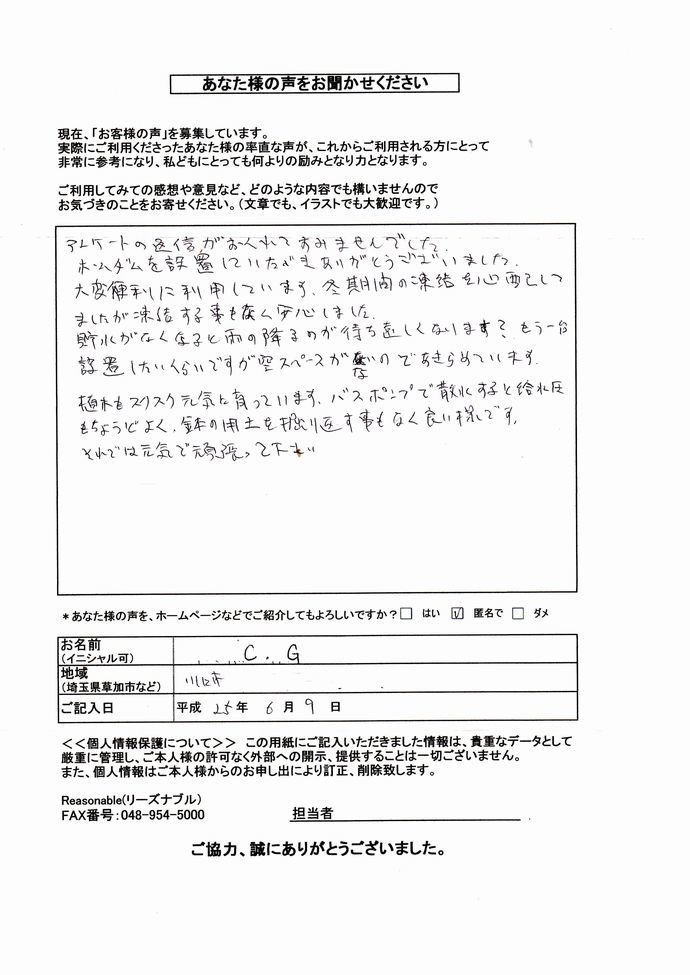 あなた様の声をお聞かせください
現在、「お客様の声」を募集しています。
実際にご利用くださったあなた様の率直な声が、これからご利用される方にとって
非常に参考になり、私どもにとっても何よりの励みとなり力となります。
ご利用してみての感想や意見など、どのような内容でも構いませんので
お気づきのことをお寄せください。(文章でも、イラストでも大歓迎です。)
アンケートの返信がおくれてすみませんでした。
ホームダムを設置していただきありがとうございました。
大変便利に利用しています、冬期間の凍結を心配して
ましたが凍結する事も無く安心しました。
貯水がなくなると雨の降るのが待ち遠しくなります? もう一台
設置したいくらいですが空スペースがないのであきらめています。
植木もスクスク元気に育っています、バスポンプで散水すると給水圧
もちょうどよく、鉢の用土を掘り返す事もなく良い様です。
それでは元気で頑張って下さい
*あなた様の声を、ホームページなどでご紹介してもよろしいですか?□ はい ☑ 匿名で □ ダメ
お名前
(イニシャル可) C.G
地域
(埼玉県草加市など) 川口市
ご記入日 平成 25 年 6 月 9 日
<<個人情報保護について>> この用紙にご記入いただきました情報は、貴重なデータとして
厳重に管理し、ご本人様の許可なく外部への開示、提供することは一切ございません。
また、個人情報はご本人様からのお申し出により訂正、削除致します。
Reasonable(リーズナブル)
FAX番号:048-954-5000 担当者
ご協力、誠にありがとうございました。